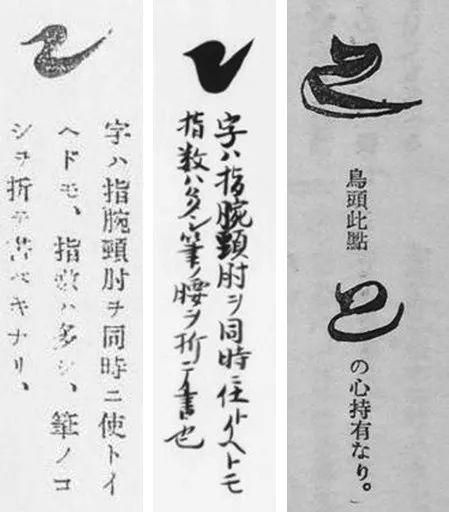 字ハ指腕頸肘ヲ同時ニ使トイ
ヘドモ、指数ハ多シ、筆ノコ
シヲ折テ書ベキナリ、
字ハ指腕頸肘ヲ同時ニ仕トイヘトモ
指数ハ多シ筆ノ腰ヲ折テ書也
鳥頭此點
の心持有なり。」